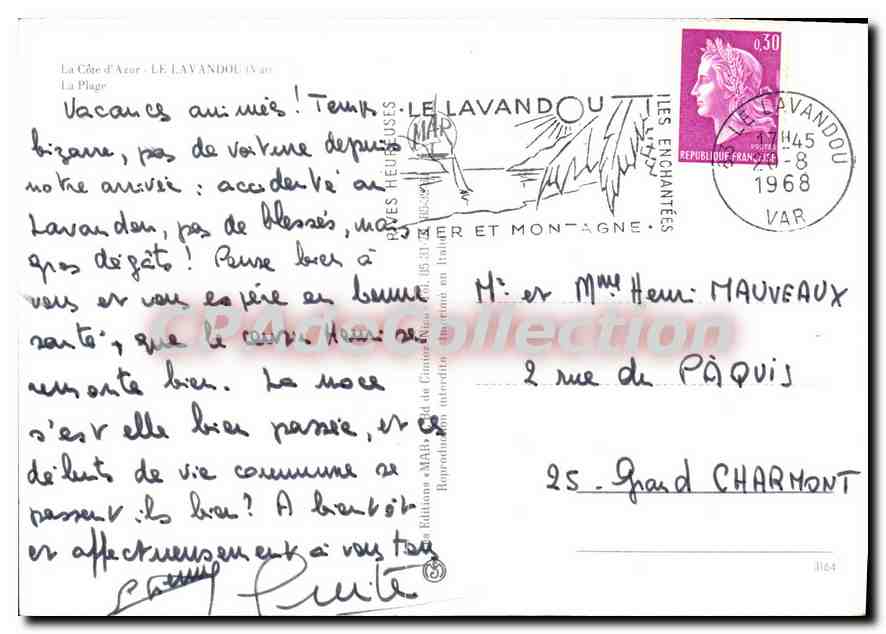 La Côte d'Azur - LE LAVANDOU (Var)
La Plage
Vacances animées! Temps
bizarre, pas de voiture depuis
notre arrivée : accidenté au
Lavandou, pas de blessés, mais
gros dégâts! Pense bien à
vous et vous espère en bonne
santé, que le cousin Henri se
remonte bien. La noce
s'est elle bien passée, et ces
débuts de vie commune se
passent-ils bien? A bientôt
et affectueusement à vous tous
LE LAVANDOU
MER ET MONTAGNE
ILES ENCHANTÉES
HEUREUSES
0,30
POSTES
REPUBLIQUE FRANÇAISE
LE LAVANDOU
17H45
-8
1968
VAR
Editions «MAR»
Reproduction interdite - Imprimé en Italie
Mr et Mme Henri MAUVEAUX
2 rue du PÂQUIS
25 - Grand CHARMONT
3164
CPAdeCollection